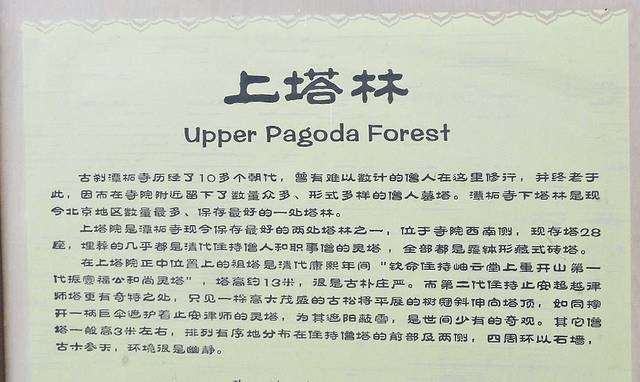 上塔林
Upper Pagoda Forest
古刹潭柘寺历经了10多个朝代，曾有难以数计的僧人在这里修行，并终老于
此，因而在寺院附近留下了数量众多、形式多样的僧人墓塔。潭柘寺下塔林是现
今北京地区数量最多、保存最好的一处塔林。
上塔院是潭柘寺现今保存最好的两处塔林之一，位于寺院西南侧，现存塔28
座，埋葬的几乎都是清代住持僧人和职事僧的灵塔，全部都是覆钟形藏式砖塔。
在上塔院正中位置上的祖塔是清代康熙年间“钦命住持岫云堂上重开山第一
代振寰福公和尚灵塔”，塔高约13米，很是古朴庄严。而第二代住持止安超越律
师塔更有奇特之处，只见一株高大茂盛的古松将平展的树冠斜伸向塔顶，如同撑
开一柄巨伞遮护着止安律师的灵塔，为其遮阳蔽雪，是世间少有的奇观。其它僧
塔一般高3米左右，排列有序地分布在住持僧塔的前部及两侧，四周环以石墙，
古木参天，环境很是幽静。